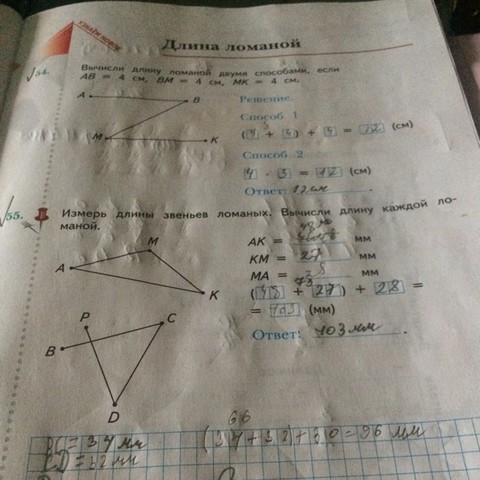 Длина ломаной
54.
Вычисли длину ломаной двумя способами, если
AB = 4 см, BM = 4 см, MK = 4 см.
A
B
M
K
Решение.
Способ 1
(4 + 4) + 4 = 12 (см)
Способ 2
4 · 3 = 12 (см)
Ответ: 12 см.
55.
Измерь длины звеньев ломаных. Вычисли длину каждой ло-
маной.
M
A
K
AK = 48 мм
KM = 27 мм
MA = 28 мм
73
(48 + 27) + 28 =
= 103 (мм)
Ответ: 103 мм.
P
C
B
D
66
BC = 34 мм
(34+32)+30=96 мм
CD = 32 мм